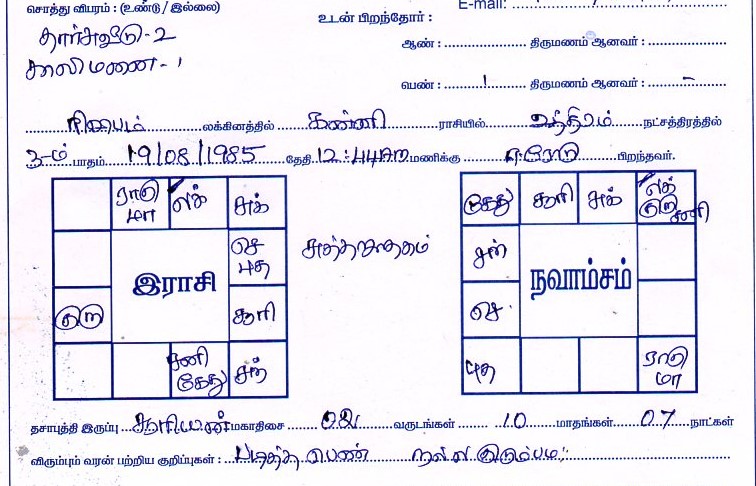 சொத்து விபரம் : (உண்டு / இல்லை)
E-mail:
உடன் பிறந்தோர் :
தார்சுவீடு - 2
ஆண் : திருமணம் ஆனவர் :
காலிமணை - 1
பெண் : 1 திருமணம் ஆனவர் : -
ரிஷபம் லக்கினத்தில் கன்னி ராசியில் உத்திரம் நட்சத்திரத்தில்
3-ம் பாதம் 19/08/1985 தேதி 12:44AM மணிக்கு ஈரோடு பிறந்தவர்.
ராகு மா லக் சுக்
கேது சூரி சுக் லக் குரு சனி
செ புத
சுத்த ஜாதகம்
சந்
இராசி
நவாம்சம்
குரு
சூரி
செ
சனி கேது சந்
புத
ராகு மா
தசாபுத்தி இருப்பு சூரியன் மகாதிசை 02 வருடங்கள் 10 மாதங்கள் 07 நாட்கள்
விரும்பும் வரன் பற்றிய குறிப்புகள் : படித்த பெண் நல்ல குடும்பம்